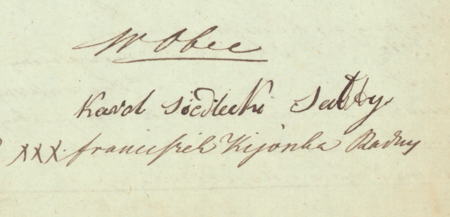 W Obec
Karol Siedlecki
xxx franciszek Kijonka Radny